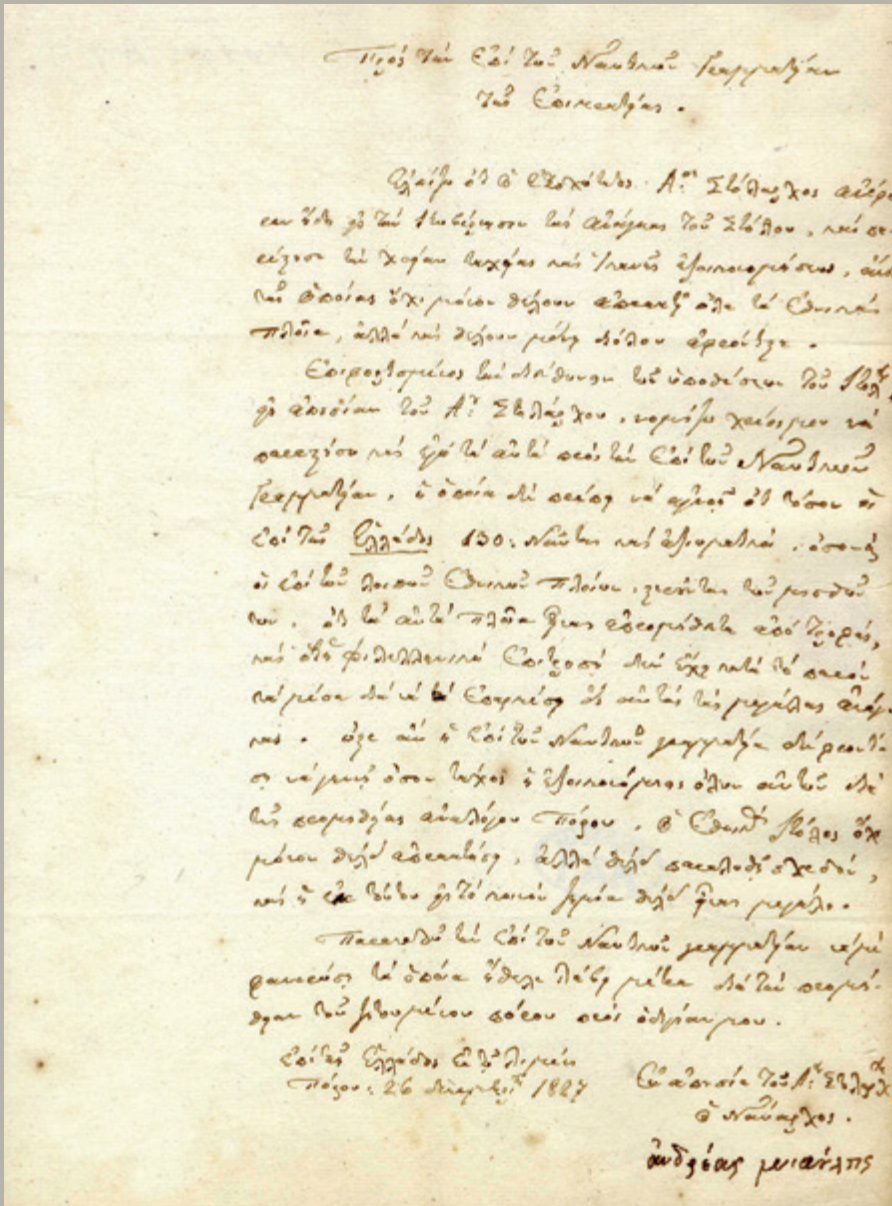 Πρός τὴν Ἐπὶ τῶν Ναυτικῶν Γραμματείαν
τῆς Ἐπικρατείας.
ὅτι ὁ Ἐξοχώτατος Α: Στόλαρχος
τὰς ἀνάγκας τοῦ Στόλου, καὶ
τὴν χρείαν ταχείας καὶ ἱκανῆς ἐξοικονομήσεως,
τῆς ὁποίας ὄχι μόνον θέλουν ὅλα τὰ Ἐθνικὰ
Πλοῖα, ἀλλὰ καὶ θέλουν μένει διόλου
Ἐπιφορτισμένος τὴν διεύθυνσιν τῶν ὑποθέσεων τοῦ Στόλου
εἰς ἀπουσίαν τοῦ Α: Στολάρχου, νομίζω χρέος μου νὰ
καὶ ἐγὼ τὰ αὐτὰ πρὸς τὴν Ἐπὶ τῶν Ναυτικῶν
Γραμματείαν, ἡ ὁποία δὲν πρέπει νὰ ἀγνοῇ ὅτι τόσον οἱ
ἐπὶ τῆς Ἑλλάδος 130: Ναῦται καὶ ἀξιωματικοὶ, ὅσον καὶ
οἱ ἐπὶ τῶν λοιπῶν Ἐθνικῶν Πλοίων, τοὺς μισθούς
των, ὅτι τὰ αὐτὰ Πλοῖα εἶναι ἀπρομήθευτα ἀπὸ Τροφάς,
καὶ ὅτι ἡ Φιλελληνικὴ Ἐπιτροπὴ δὲν ἔχει κατὰ τὸ παρὸν
τὰ μέσα διὰ νὰ εἰς αὐτὰς τὰς μεγάλας ἀνάγ-
κας. ἂν ἡ Ἐπὶ τῶν Ναυτικῶν γραμματεία δὲν φροντί-
σῃ νὰ γένῃ ὅσον τάχος ἡ ἐξοικονόμησις ὅλων αὐτῶν διὰ
τῆς προμηθείας ἀναλόγου Πόρου, ὁ Ἐθνικὸς Στόλος ὄχι
μόνον θέλει ἀλλὰ θέλει σχεδόν,
καὶ ἡ ἐκ τούτου εἰς τὸ κοινὸν ζημία θέλει εἶναι μεγάλη.
Παρακαλῶ τὴν Ἐπὶ τῶν Ναυτικῶν γραμματείαν νὰ μὲ
φανερώσῃ τὰ ὁποῖα ἤθελε λάβῃ μέτρα διὰ τὴν προμή-
θειαν τοῦ ζητουμένου πόρου πρὸς ὁδηγίαν μου.
Ἐπὶ τῆς Ἑλλάδος ἐν τῷ λιμένι
Πόρου: 26 1827
Ἐν ἀπουσίᾳ τοῦ Α: Στολάρχου
ὁ Ναύαρχος.
ἀνδρέας μιαούλης